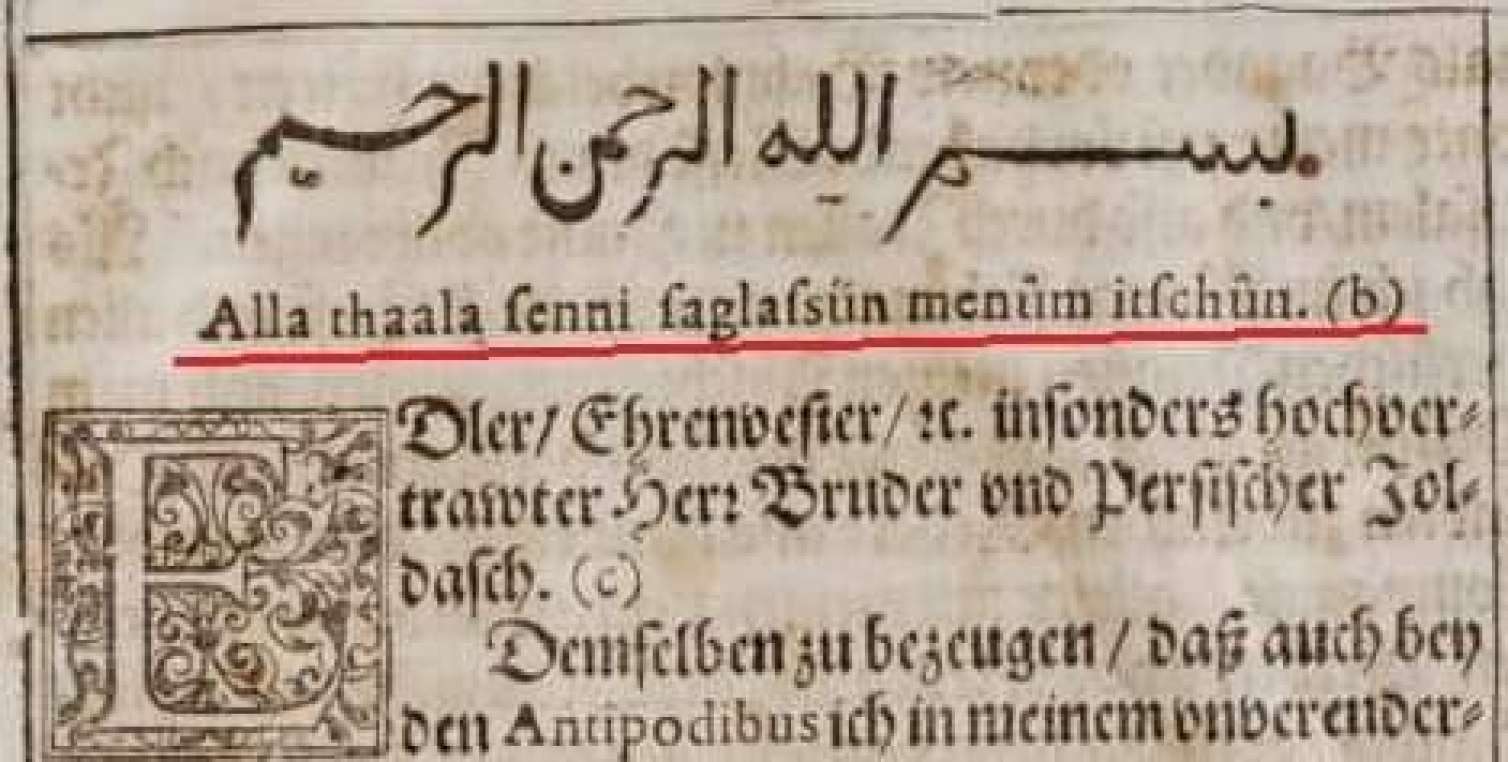 بسم الله الرحمن الرحيم
Alla thaala ſenni ſaglaſsün menûm itſchûn. (b)
EDler/ Ehrenveſter/ ꝛc. inſonders hochver⸗
trawter Herꝛ Bruder vnd Perſiſcher Jol⸗
daſch. (c)
Demſelben zu bezeugen / daß auch bey
den Antipodibus ich in meinem vnverender⸗